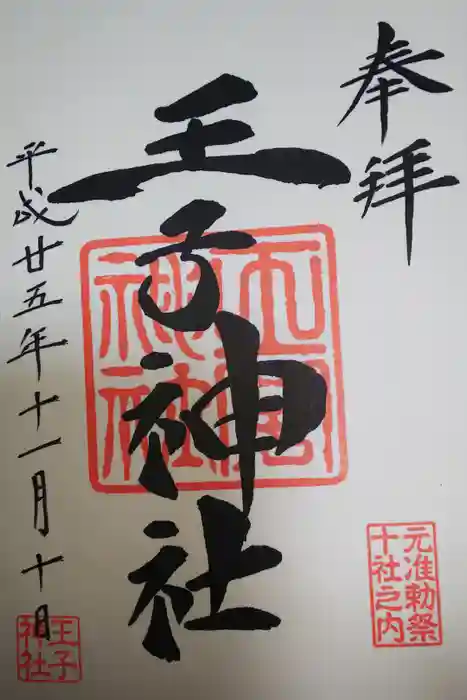 奉拝
王子神社
平成廿五年十一月十日
元准勅祭
十社之内
王子
神社